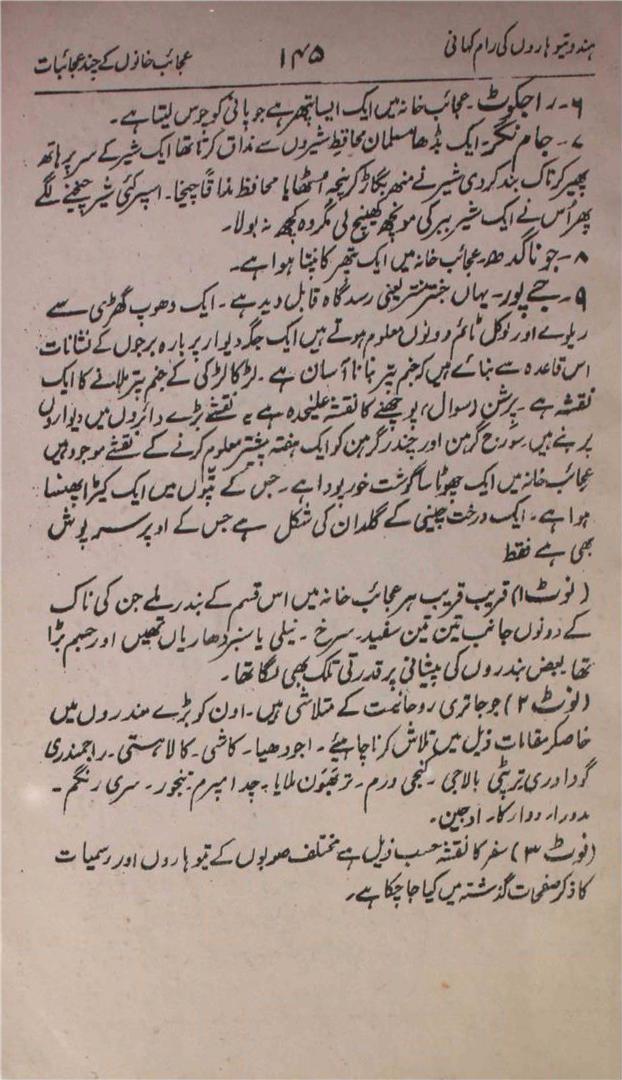 ہندو تیوہاروں کی رام کہانی ۱۴۵ عجائب خانوں کے چند عجائبات
۶۔ راجکوٹ۔ عجائب خانہ میں ایک ایسا پتھر ہے جو پانی کو چوس لیتا ہے۔
۷۔ جام نگر۔ ایک بڈھا مسلمان محافظ شیروں سے مذاق کرتا تھا ایک شیر کے سر پر ہاتھ
پھیر کر ناک بند کر دی شیر نے منھ بگاڑ کر پنجہ اٹھایا محافظ مذاقاً چیخا۔ اسپر کئی شیر چیخنے لگے
پھر اُس نے ایک شیر ببر کی مونچھ کھینچ لی مگر وہ کچھ نہ بولا۔
۸۔ جونا گدھ۔ عجائب خانہ میں ایک پتھر کانپتا ہوا ہے۔
۹۔ جے پور۔ یہاں جنتر منتر یعنی رسدگاہ قابل دید ہے۔ ایک دھوپ گھڑی سے
ریلوے اور لوکل ٹائم دونوں معلوم ہوتے ہیں ایک جگہ دیوار پر بارہ برجوں کے نشانات
اس قاعدہ سے بنائے ہیں کہ جنم پتر بنانا آسان ہے۔ لڑکا لڑکی کے جنم پتر ملانے کا ایک
نقشہ ہے۔ پرشن (سوال) پوچھنے کا نقشہ علیٰحدہ ہے یہ نقشے بڑے دائروں میں دیواروں
پر بنے ہیں سورج گرہن اور چندر گرہن کو ایک ہفتہ پیشتر معلوم کرنے کے نقشے موجود ہیں
عجائب خانہ میں ایک چھوٹا سا گوشت خور پودا ہے۔ جس کے پتّوں میں ایک کیڑا پھنسا
ہوا ہے۔ ایک درخت چینی کے گلدان کی شکل ہے جس کے اوپر سرپوش
بھی ہے فقط
(نوٹ ۱) قریب قریب ہر عجائب خانہ میں اس قسم کے بندر ملے جن کی ناک
کے دونوں جانب تین تین سفید۔ سرخ۔ نیلی یا سبز دھاریاں تھیں اور جسم بڑا
تھا بعض بندروں کی پیشانی پر قدرتی تلک بھی لگا تھا۔
(نوٹ ۲) جو جاتری روحانیت کے متلاشی ہیں۔ اون کو بڑے مندروں میں
خاصکر مقامات ذیل میں تلاش کرنا چاہیئے۔ اجودھیا۔ کاشی۔ کالا ہستی۔ راجمندری
گوداوری ترپتی بالاجی۔ کنجی ورم۔ ملایا۔ چدامپرم۔ تنجور۔ سری رنگم۔
مدورا۔ دوارکا۔ اوجین۔
(نوٹ ۳) سفر کا نقشہ حسب ذیل ہے مختلف صوبوں کے تیوہاروں اور رسمیات
کا ذکر صفحات گذشتہ میں کیا جا چکا ہے۔